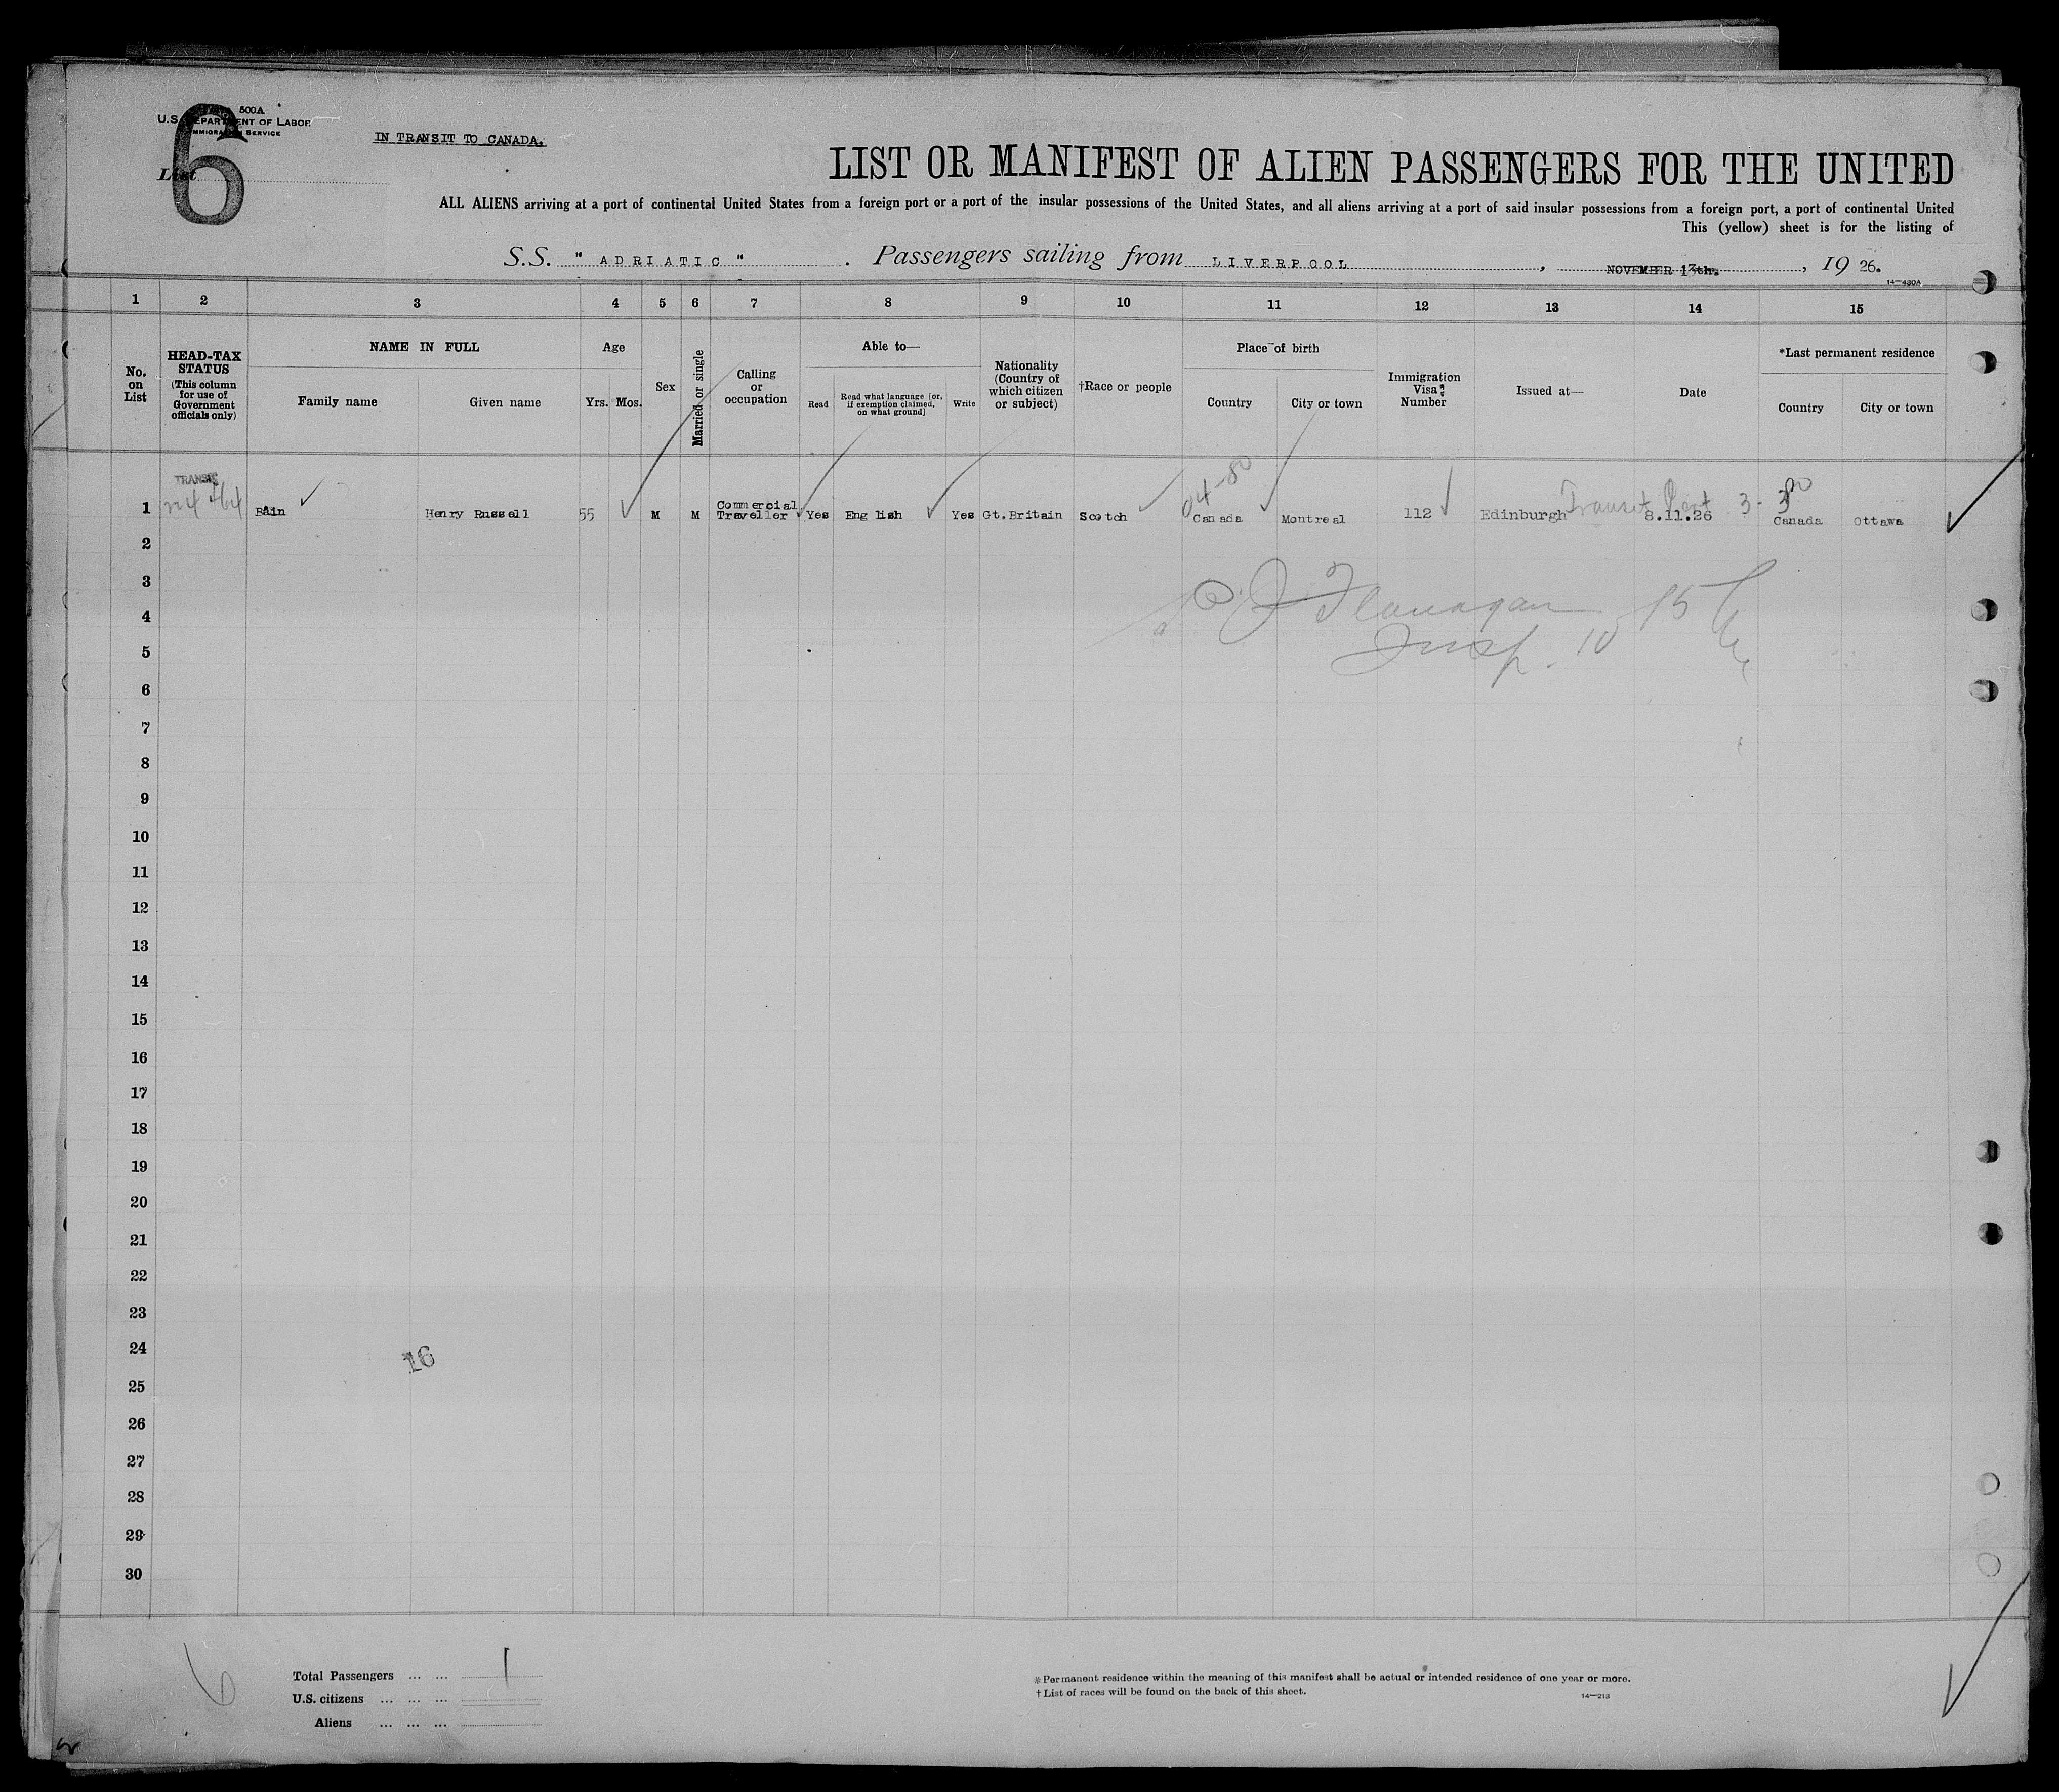 500A
U.S. DEPARTMENT OF LABOR
IMMIGRATION SERVICE
6
List
IN TRANSIT TO CANADA.
LIST OR MANIFEST OF ALIEN PASSENGERS FOR THE UNITED
ALL ALIENS arriving at a port of continental United States from a foreign port or a port of the insular possessions of the United States, and all aliens arriving at a port of said insular possessions from a foreign port, a port of continental United
This (yellow) sheet is for the listing of
S.S. " ADRIATIC " . Passengers sailing from LIVERPOOL , NOVEMBER 13th. , 19 26.
14—430A
1 2 3 4 5 6 7 8 9 10 11 12 13 14 15
No. on List
HEAD-TAX STATUS
(This column for use of Government officials only)
NAME IN FULL
Family name Given name
Age
Yrs. Mos.
Sex
Married or single
Calling or occupation
Able to—
Read
Read what language [or, if exemption claimed, on what ground]
Write
Nationality (Country of which citizen or subject)
†Race or people
Place of birth
Country City or town
Immigration Visa Number
Issued at—
Date
*Last permanent residence
Country City or town
TRANSIT
04-80
Transit
1 Bain Henry Russell 55 M M Commercial Traveller Yes English Yes Gt.Britain Scotch Canada Montreal 112 Edinburgh 8.11.26 Canada Ottawa
2
3
Flanagan
4
Insp. 10
5
6
7
8
9
10
11
12
13
14
15
16
17
18
19
20
21
22
23
24
16
25
26
27
28
29
30
6
Total Passengers ... ... 1
U.S. citizens ... ... ...
Aliens ... ... ...
* Permanent residence within the meaning of this manifest shall be actual or intended residence of one year or more.
† List of races will be found on the back of this sheet.
14—213